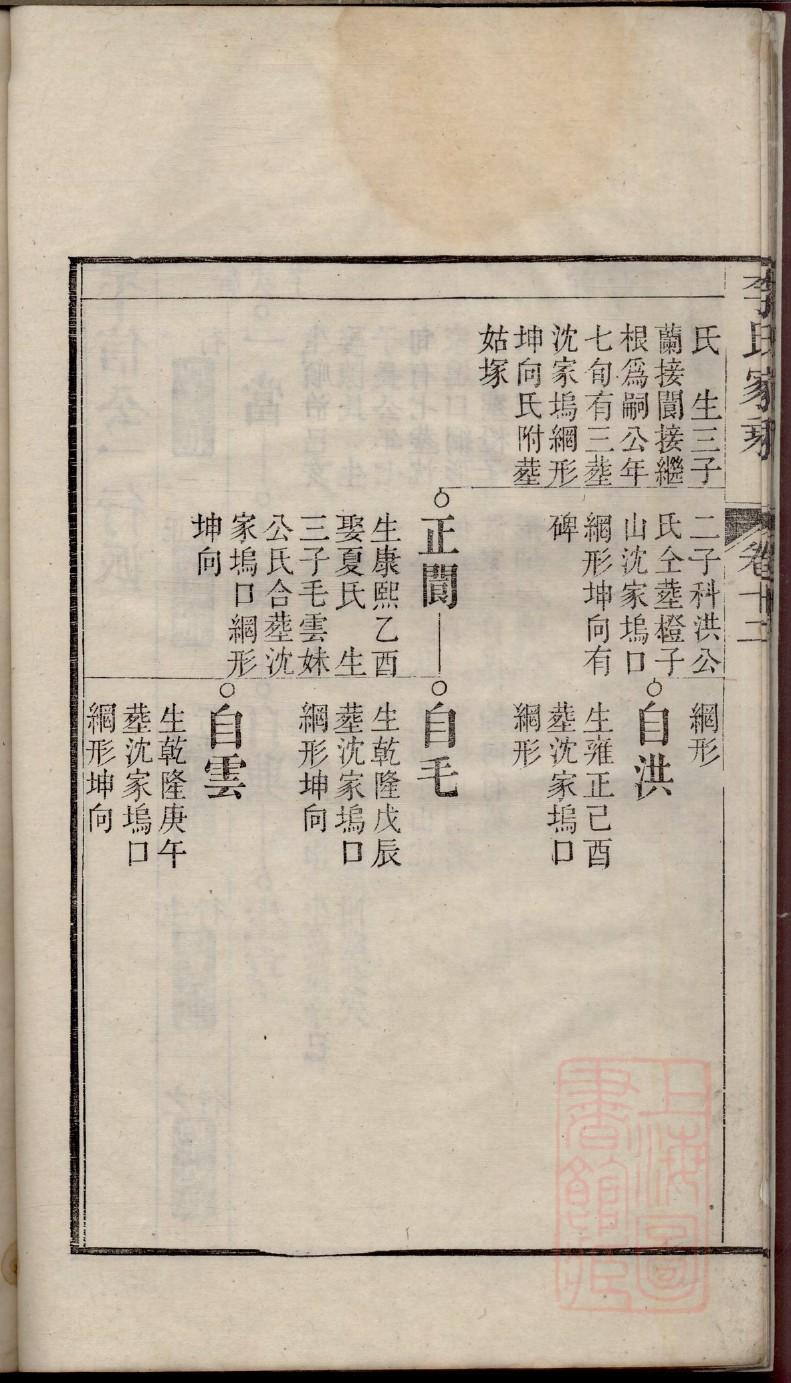 李氏家乘
卷十二
氏　生三子
蘭接閶接繼
根爲嗣公年
七旬有三塟
沈家塢網形
坤向氏附塟
姑塚
二子科洪公
氏仝塟橙子
山沈家塢口
網形坤向有
碑
正閶
生康熙乙酉
娶夏氏　生
三子毛雲妹
公氏合塟沈
家塢口網形
坤向
網形
自洪
生雍正己酉
塟沈家塢口
網形
自毛
生乾隆戊辰
塟沈家塢口
網形坤向
自雲
生乾隆庚午
塟沈家塢口
網形坤向
上海圖
書館藏